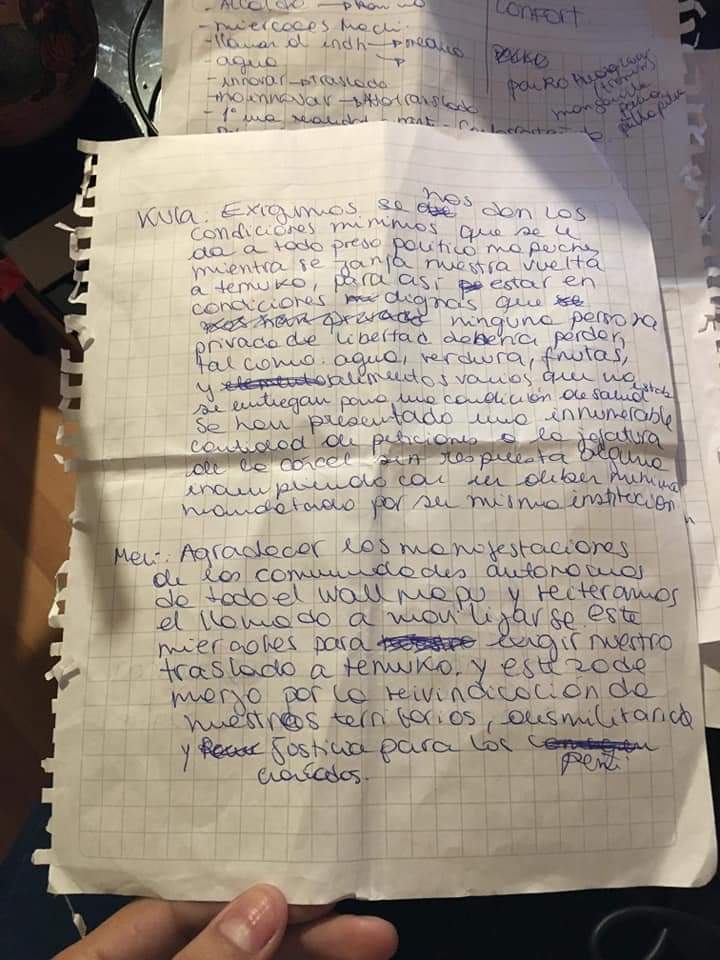 - miercoles Mechi.
- agua
- innovar → traslado
- no innovar →
CONFORT.
Kula: Exigimos se nos den las
condiciones minimos que se le
da a todo preso politico mapuche,
mientra se zanja nuestra vuelta
a temuko, para asi estar en
condiciones dignas que
ninguna persona
privada de libertad deberia perder,
tal como. agua, verdura, frutas,
y alimentos varios que no
se entregan para una condición de salud estable
Se han presentado una innumerable
cantidad de peticiones a la jefatura
de la carcel sin respuesta alguna
incumpliendo con su deber minimo
mandatado por su misma institución
Meli: Agradecer las manifestaciones
de las comunidades autonomas
de todo el wall mapu y reiteramos
el llamado a movilizarse este
miercoles para exigir nuestro
traslado a temuko. y este 20 de
marzo por la reivindicación de
nuestros territorios, desmilitarización
y Justicia para los peñi